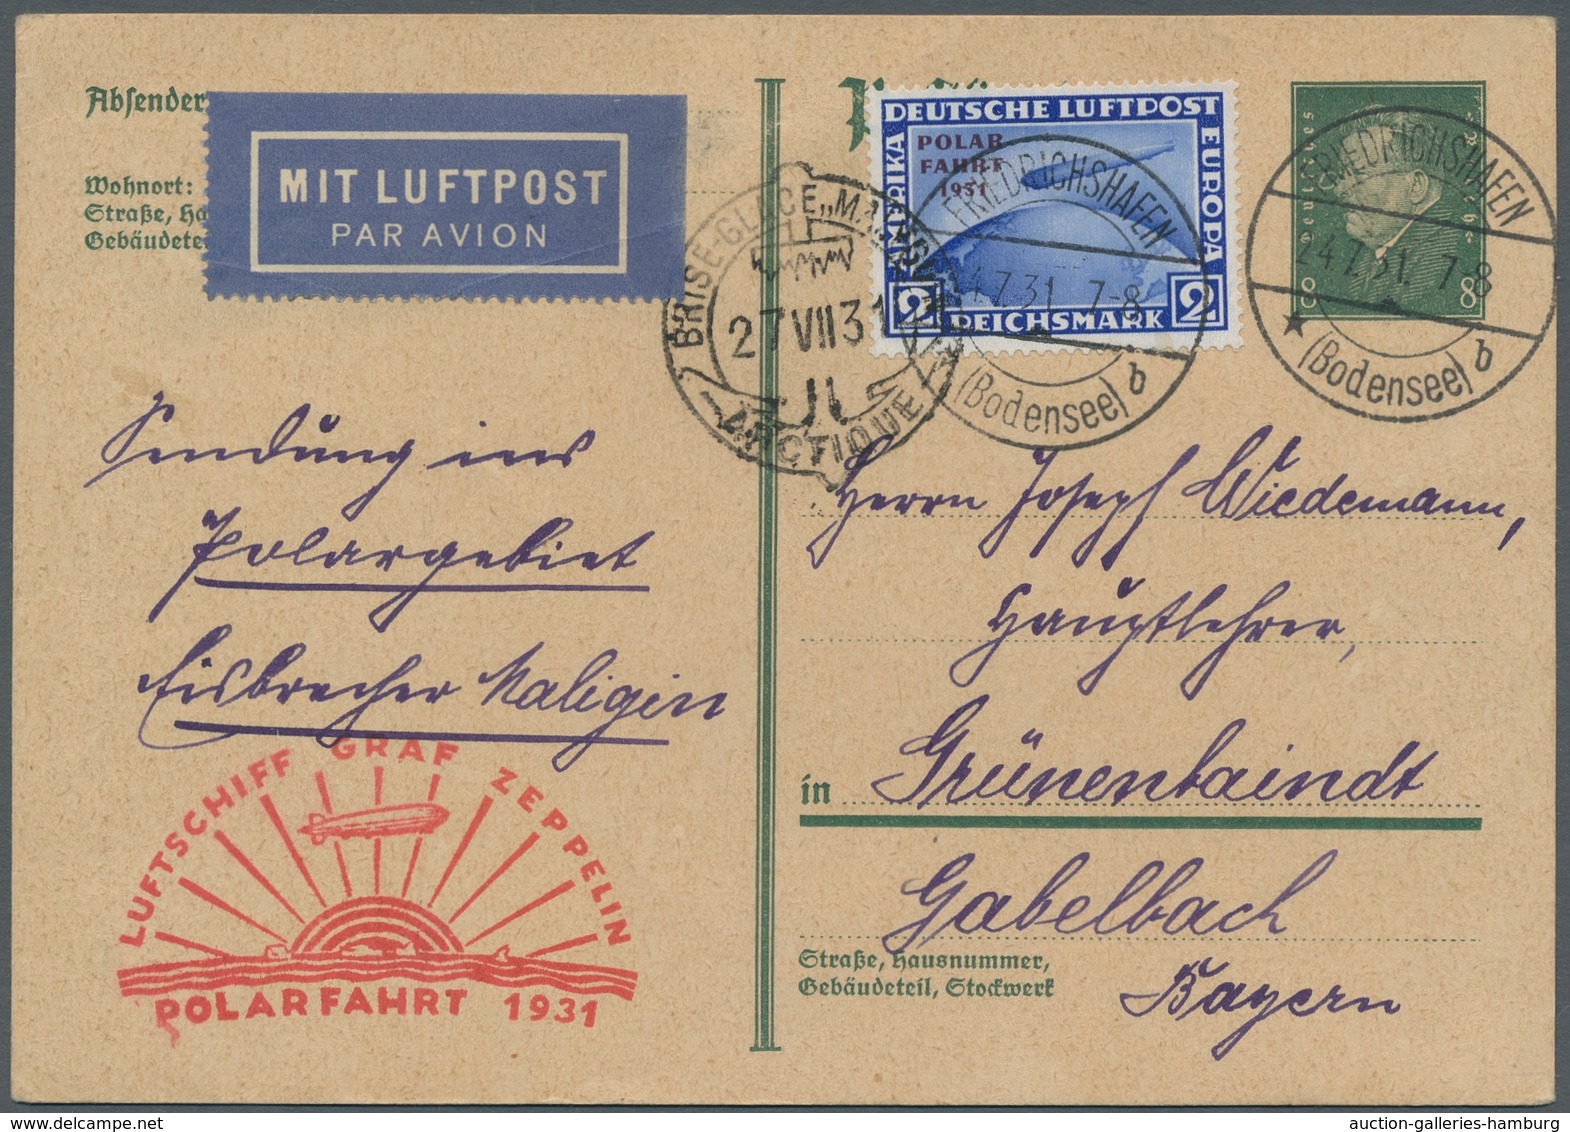 Absender
Wohnort:
Straße, Ha
Gebäudetei
MIT LUFTPOST
PAR AVION
DEUTSCHE LUFTPOST
EUROPA
POLAR
FAHRT
1931
2 REICHSMARK 2
FRIEDRICHSHAFEN
24.7.31. 7-8
(Bodensee) b
BRISE-GLACE „MALYGUIN"
27 VII 31
ARCTIQUE
Deutsches Reich
8 8
FRIEDRICHSHAFEN
24.7.31. 7-8
(Bodensee) b
Sendung ins
Polargebiet
Eisbrecher Maligin
Herrn Joseph Wiedemann,
Hauptlehrer,
in Grünenbaindt
Gabelbach
Bayern
Straße, Hausnummer,
Gebäudeteil, Stockwerk
LUFTSCHIFF GRAF ZEPPELIN
POLARFAHRT 1931
auction-galleries-hamburg